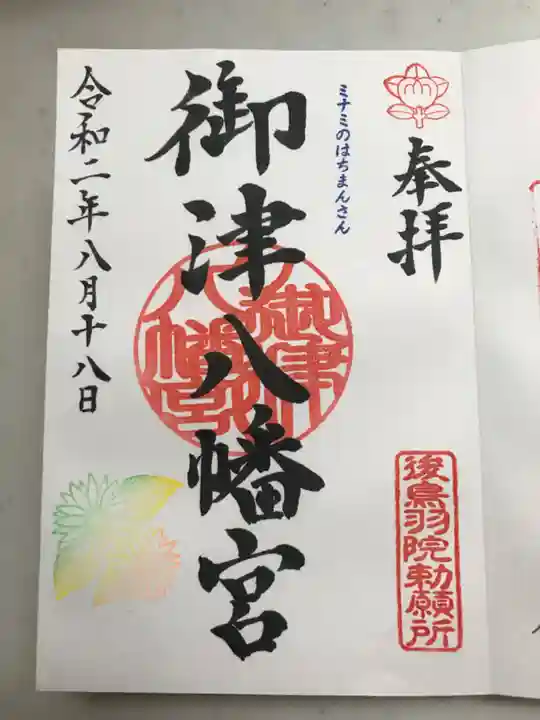 奉拝
後鳥羽院勅願所
ミナミのはちまんさん
御津八幡宮
御津八幡宮
令和二年八月十八日